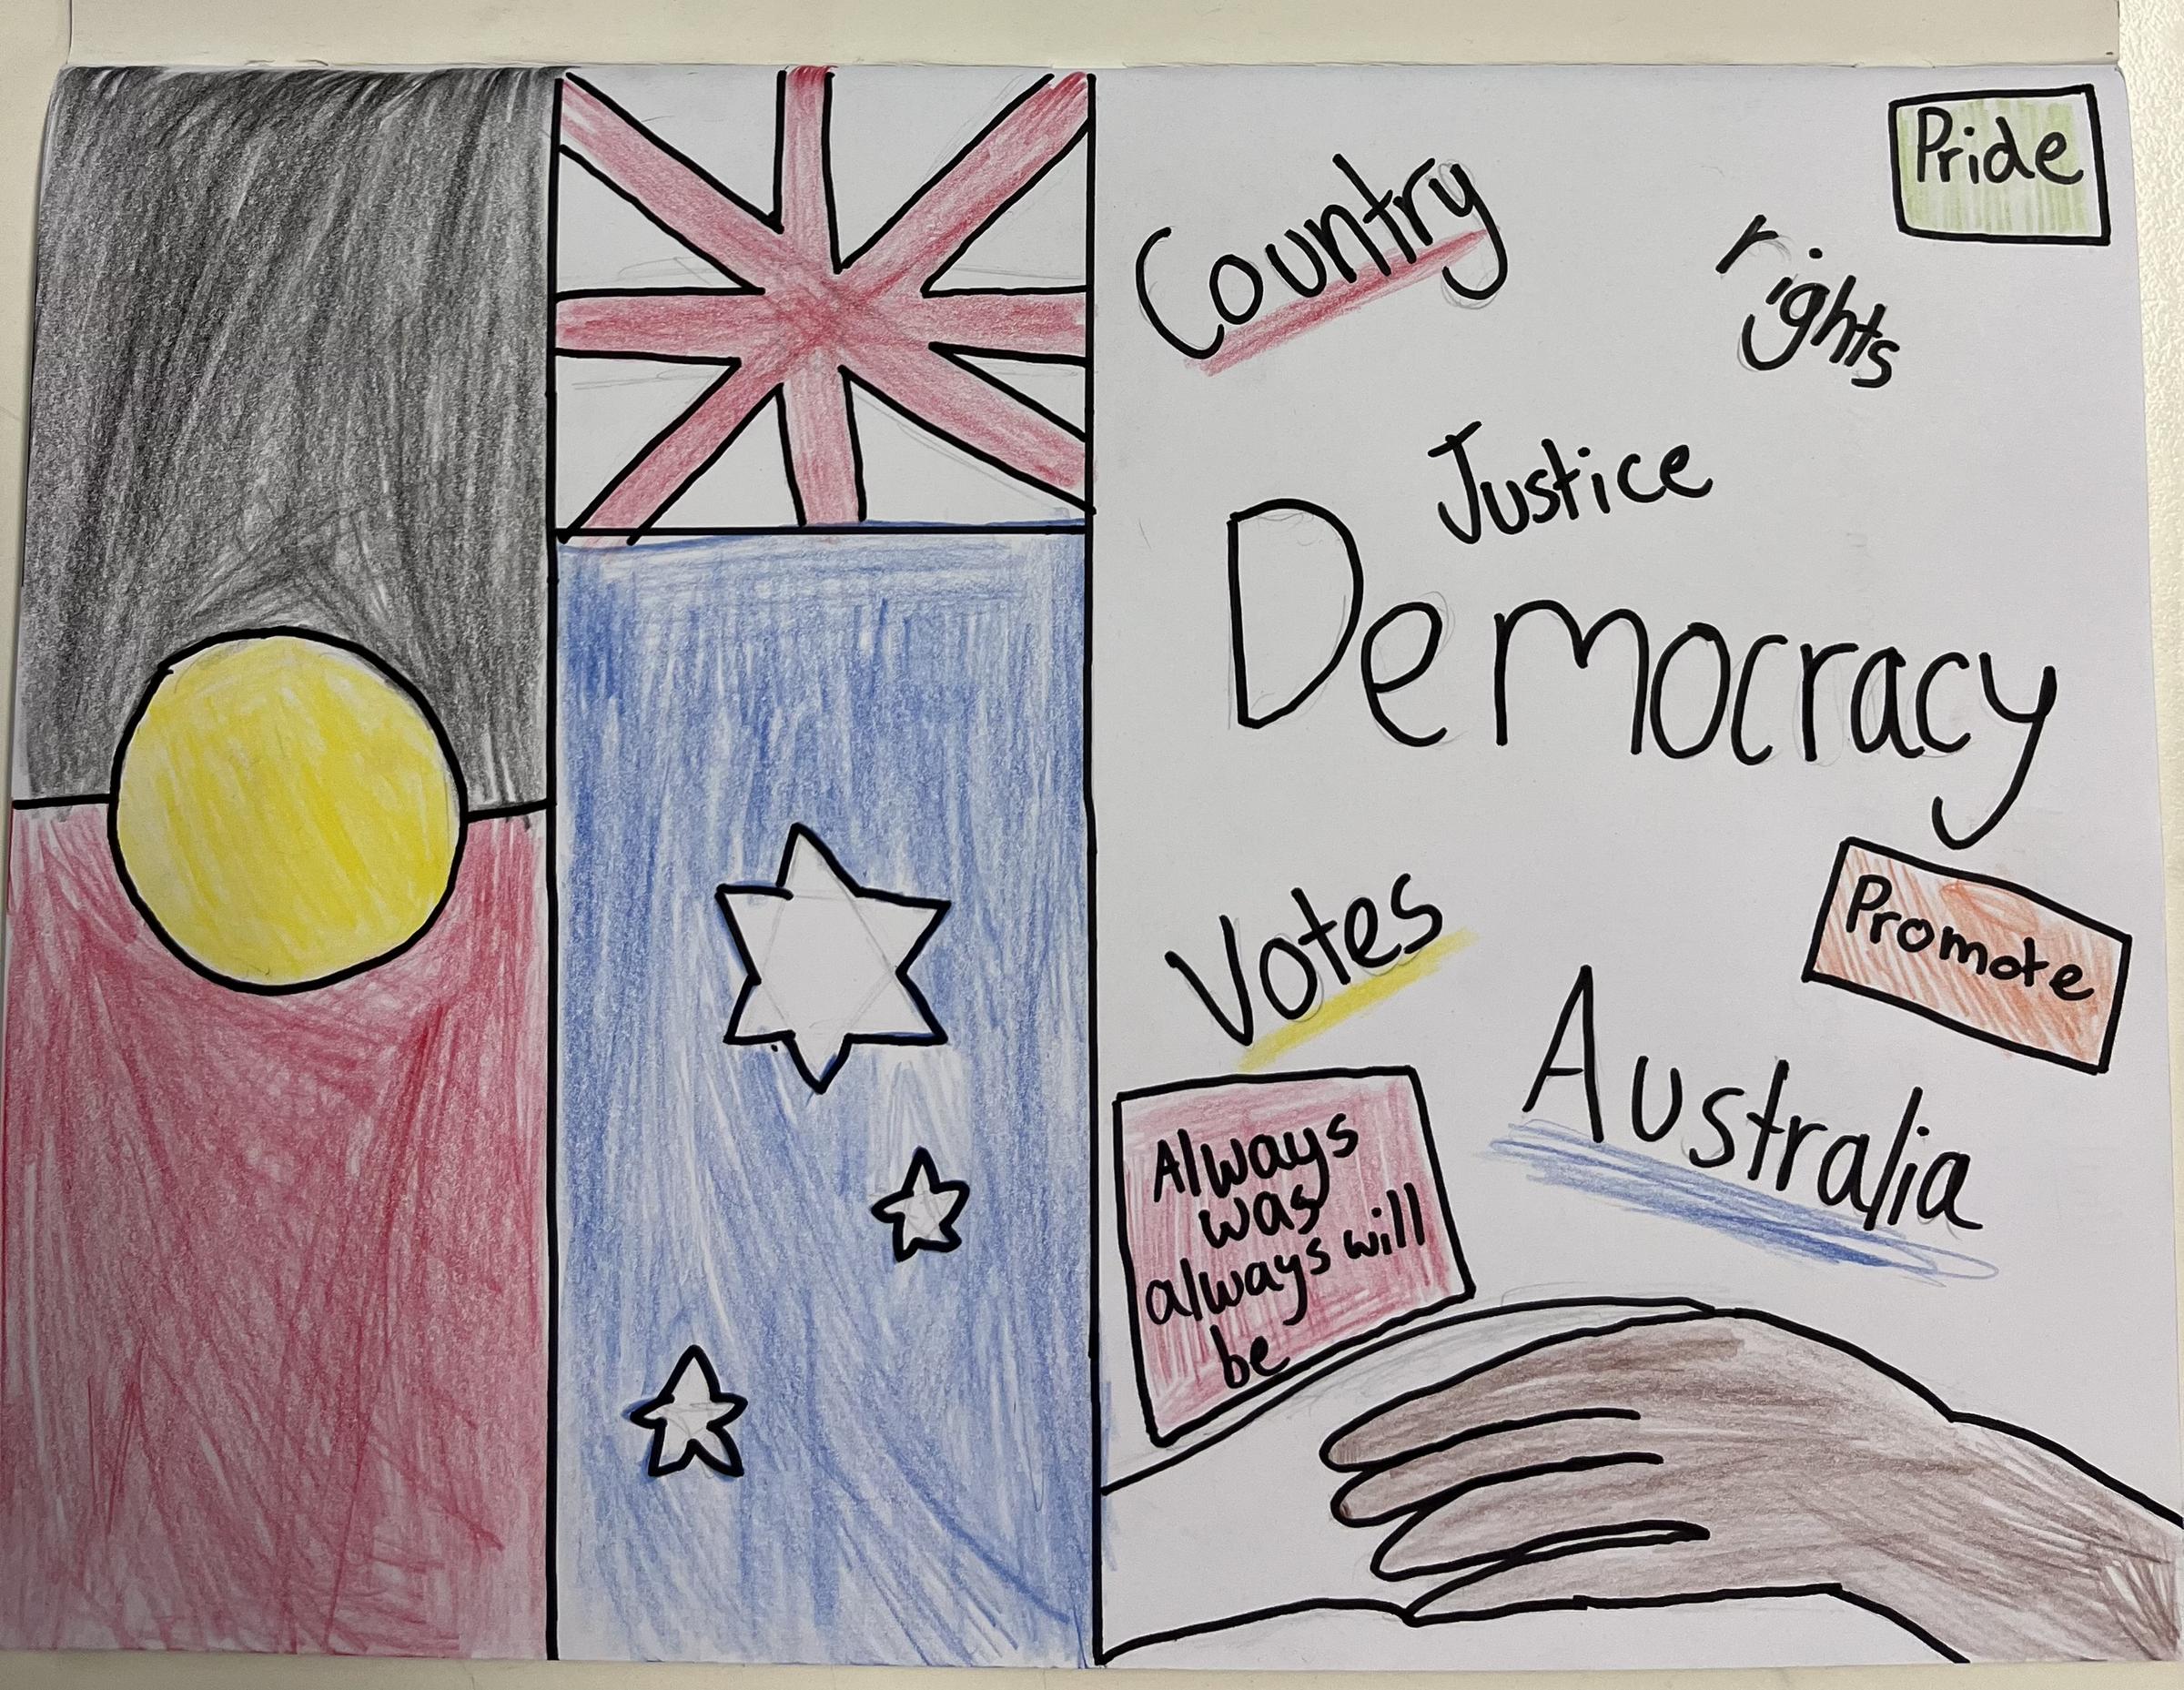 Pride
Country
rights
Justice
Democracy
Votes
Promote
Australia
Always
was
always will
be